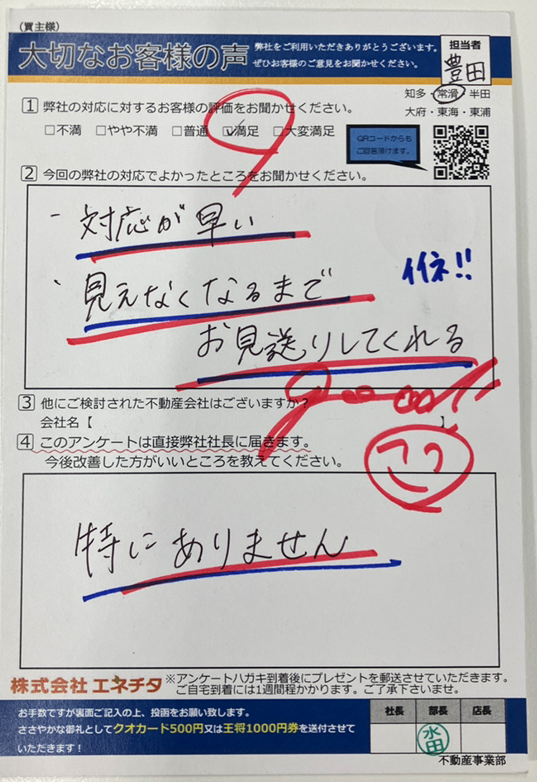 (買主様)
大切なお客様の声
弊社をご利用いただきありがとうございます。
ぜひお客様のご意見をお聞かせください。
担当者
豊田
知多・常滑・半田
大府・東海・東浦
1 弊社の対応に対するお客様の評価をお聞かせください。
□不満 □やや不満 □普通 ☑満足 □大変満足
QRコードからも
ご回答頂けます。
2 今回の弊社の対応でよかったところをお聞かせください。
・対応が早い
・見えなくなるまで
お見送りしてくれる
イイネ!!
good!!
3 他にご検討された不動産会社はございますか?
会社名【 】
4 このアンケートは直接弊社社長に届きます。
今後改善した方がいいところを教えてください。
特にありません
株式会社 エネチタ
※アンケートハガキ到着後にプレゼントを郵送させていただきます。
ご自宅到着には1週間程かかります。ご了承下さいませ。
お手数ですが裏面ご記入の上、投函をお願い致します。
ささやかな御礼としてクオカード500円又は王将1000円券を送付させて
いただきます!
社長 部長 店長
水田
不動産事業部